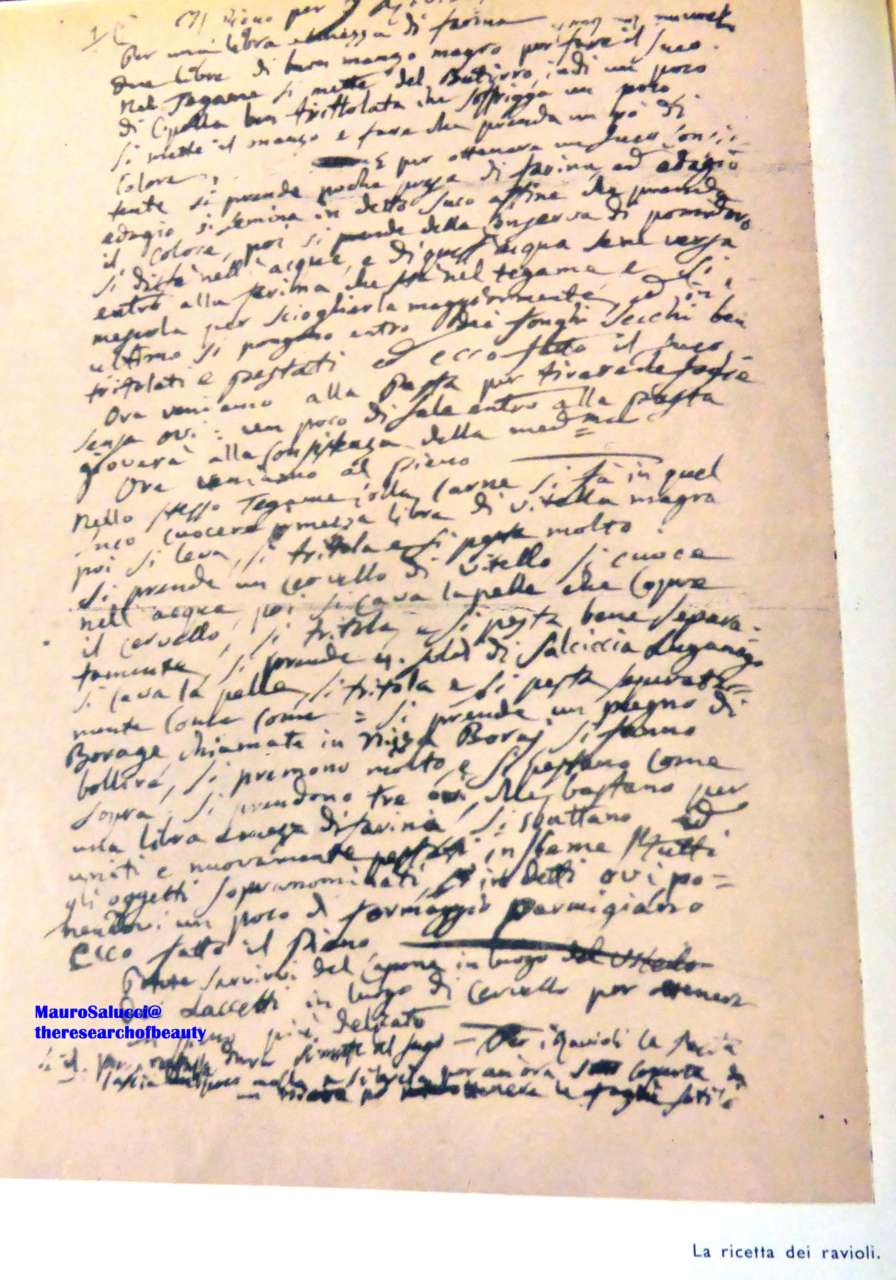 Il Pieno per
Per una libra e mezza di farina
due libre di buon manzo magro per fare il suco.
Nel tegame si mette del Butirro, indi un poco
di Cipolla ben trittolata che soffrigga un poco
Si mette il manzo e fare che prenda un pò di
Colore,
E per ottenere un suco Consis-
tente si prende poche prese di farina, ed adagio
adagio si semina in detto suco affine che prenda
il Colore, poi si prende della Conserva di pomodoro
Si disfà nell'acqua, e di quest'acqua se ne versa
entro alla farina che stà nel tegame e si
mescola per sciogliarla maggiormente, ed in
ultimo si pongano entro dei fonghi Secchi ben
tritolati e pestati ed ecco fatto il suco
Ora veniamo alla Pasta per tirare le foglie
Senza ovi: un poco di Sale entro alla pasta
gioverà alla Consistenza della med=ma
Ora veniamo al pieno
Nello stesso Tegame colla Carne si fà in quel
suco cuocere mezza libra di vitella magra
poi si leva, si tritola e si pesta molto
Si prende un cervello di vitello si cuoce
nell'acqua, poi si cava la pelle che Copre
il cervello, si tritola e si pesta bene Separa-
tamente, si prende soldi di Salciccia Luganega
Si cava la pelle, si tritola e si pesta separata=
mente
Si prende un pugno di
Borage chiamate in Nizza Boraj si fanno
bollire, si premono molto e si pestano Come
Sopra. si prendono tre ovi che bastano per
una libra e mezza di farina, Si sbattano ed
uniti e nuovamente pestati insieme Tutti
gli oggetti Sopranominati, in detti ovi po=
nendovi un poco di formaggio parmigiano
Ecco fatto il Pieno
Potete servirvi del Capone in luogo del vitello
Dei Laccetti in luogo di Cervello per ottenere
un pieno più delicato
Per i Ravioli la Pasta
la foglia sotile
MauroSalucci@
theresearchofbeauty
La ricetta dei ravioli.